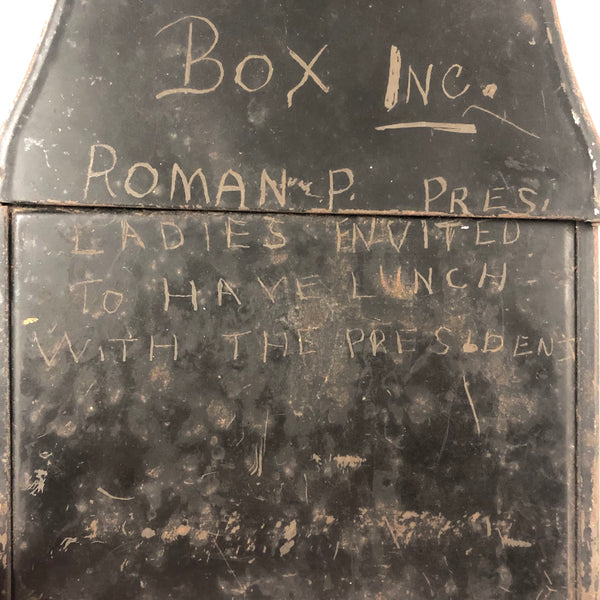 Box Inc.
ROMAN P. PRES.
LADIES INVITED
TO HAVE LUNCH
WITH THE PRESIDENT